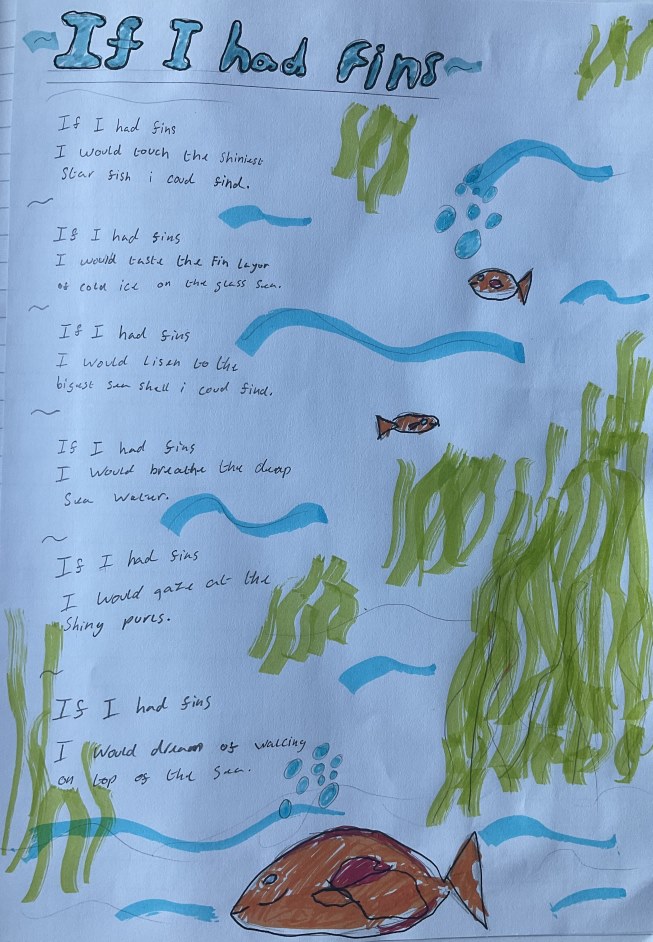 If I had fins
If I had fins
I would touch the shiniest
Star fish i coud find.
If I had fins
I would taste the Fin Layur
of cold ice on the glass sea.
If I had fins
I would Lisen to the
bigest sea shell i coud find.
If I had fins
I would breathe the deap
Sea water.
If I had fins
I would gaze at the
Shiny purls.
If I had fins
I would dream of walking
on top of the sea.